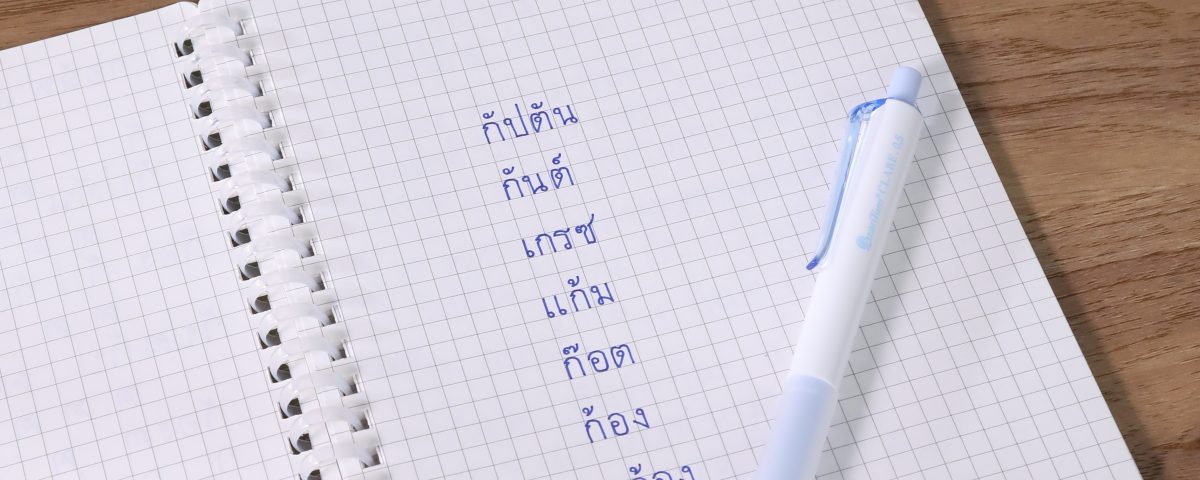 กัปตัน
กันต์
เกรซ
แก้ม
ก๊อต
ก้อง
Quantum CLARE 0.5